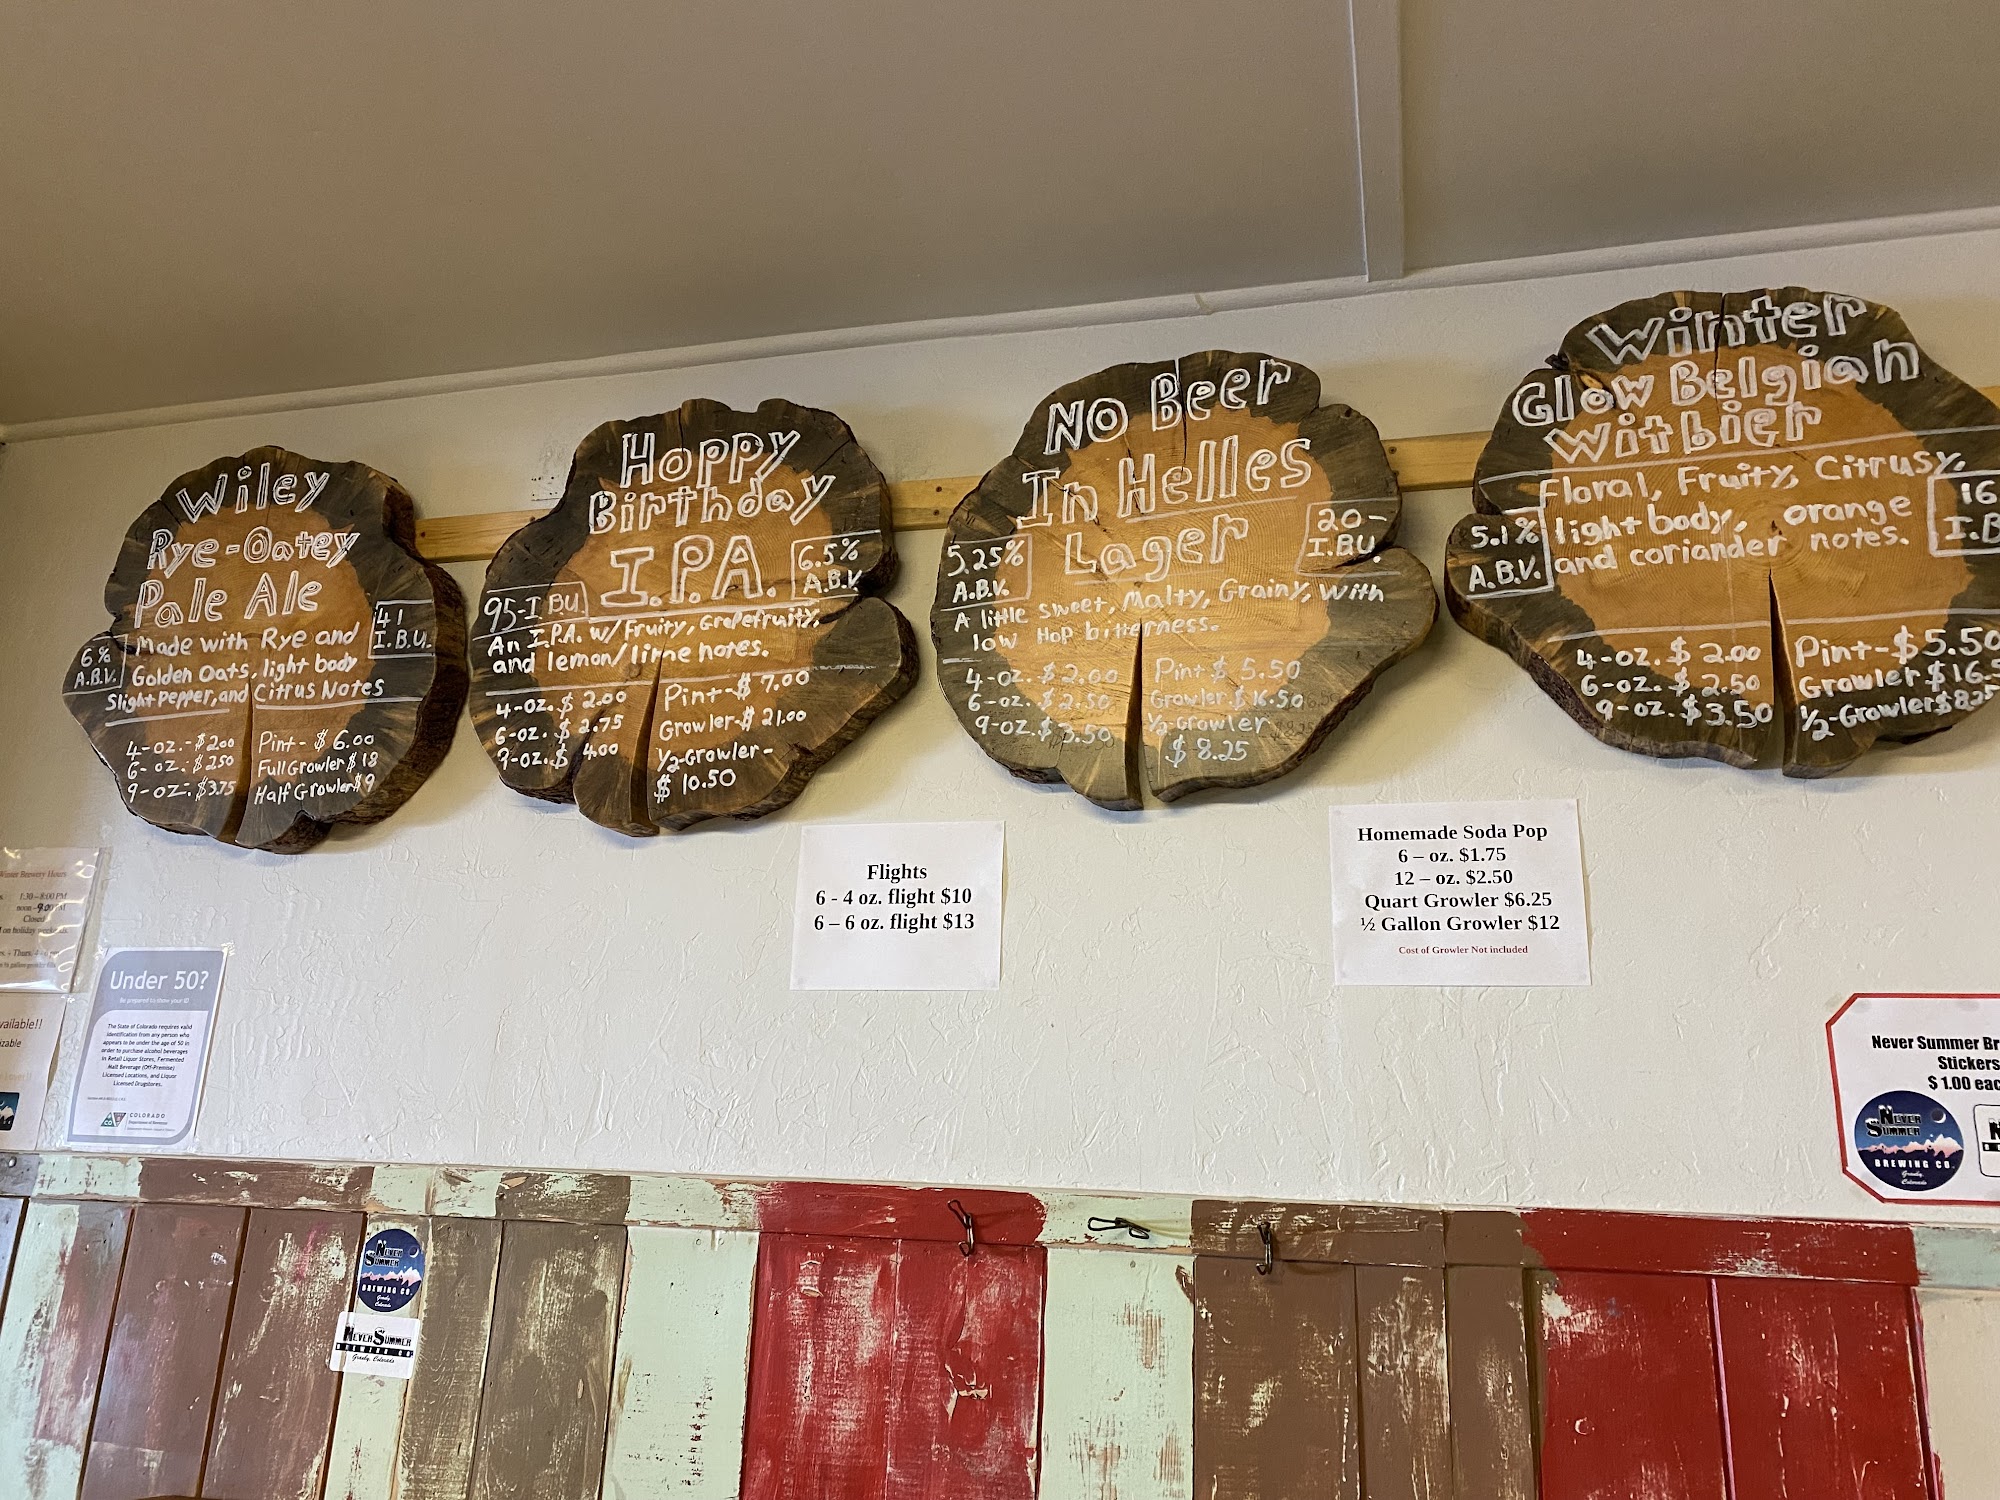 Wiley
Rye-Oatey
Pale Ale
41
I.B.U.
6%
A.B.V.
Made with Rye and
Golden Oats, light body
Slight Pepper, and Citrus Notes
4-oz.-$2.00
6-oz.-$2.50
9-oz.-$3.75
Pint- $6.00
Full Growler $18
Half Growler $9
Hoppy
Birthday
I.P.A.
6.5%
A.B.V.
95-I.B.U.
An I.P.A. w/ Fruity, Grapefruity,
and lemon/lime notes.
4-oz. $2.00
6-oz. $2.75
9-oz. $4.00
Pint-$7.00
Growler-$21.00
1/2-Growler-
$10.50
No Beer
In Helles
Lager
20-
I.B.U.
5.25%
A.B.V.
A little sweet, Malty, Grainy, with
low Hop bitterness.
4-oz. $2.00
6-oz. $2.50
9-oz. $3.50
Pint $5.50
Growler $16.50
1/2-Growler
$8.25
Winter
Glow Belgian
Witbier
Floral, Fruity, Citrusy,
light body, orange
and coriander notes.
5.1%
A.B.V.
16
I.B
4-oz. $2.00
6-oz. $2.50
9-oz. $3.50
Pint-$5.50
Growler $16.5
1/2-Growler $8.25
Flights
6 - 4 oz. flight $10
6 – 6 oz. flight $13
Homemade Soda Pop
6 – oz. $1.75
12 – oz. $2.50
Quart Growler $6.25
½ Gallon Growler $12
Cost of Growler Not included
Winter Brewery Hours
1:30 – 8:00 PM
noon - 9:00 PM
Closed
on holiday weekends
Under 50?
Be prepared to show your ID
The State of Colorado requires valid
identification from any person who
appears to be under the age of 50 in
order to purchase alcohol beverages
in Retail Liquor Stores, Fermented
Malt Beverage (Off-Premise)
Licensed Locations, and Liquor
Licensed Drugstores.
COLORADO
Department of Revenue
Never Summer Br
Stickers
$1.00 eac
Never
Summer
Brewing Co.
Granby,
Colorado
Never
Summer
Brewing Co.
Granby
Colorado
Never Summer
Brewing Co.
Granby, Colorado